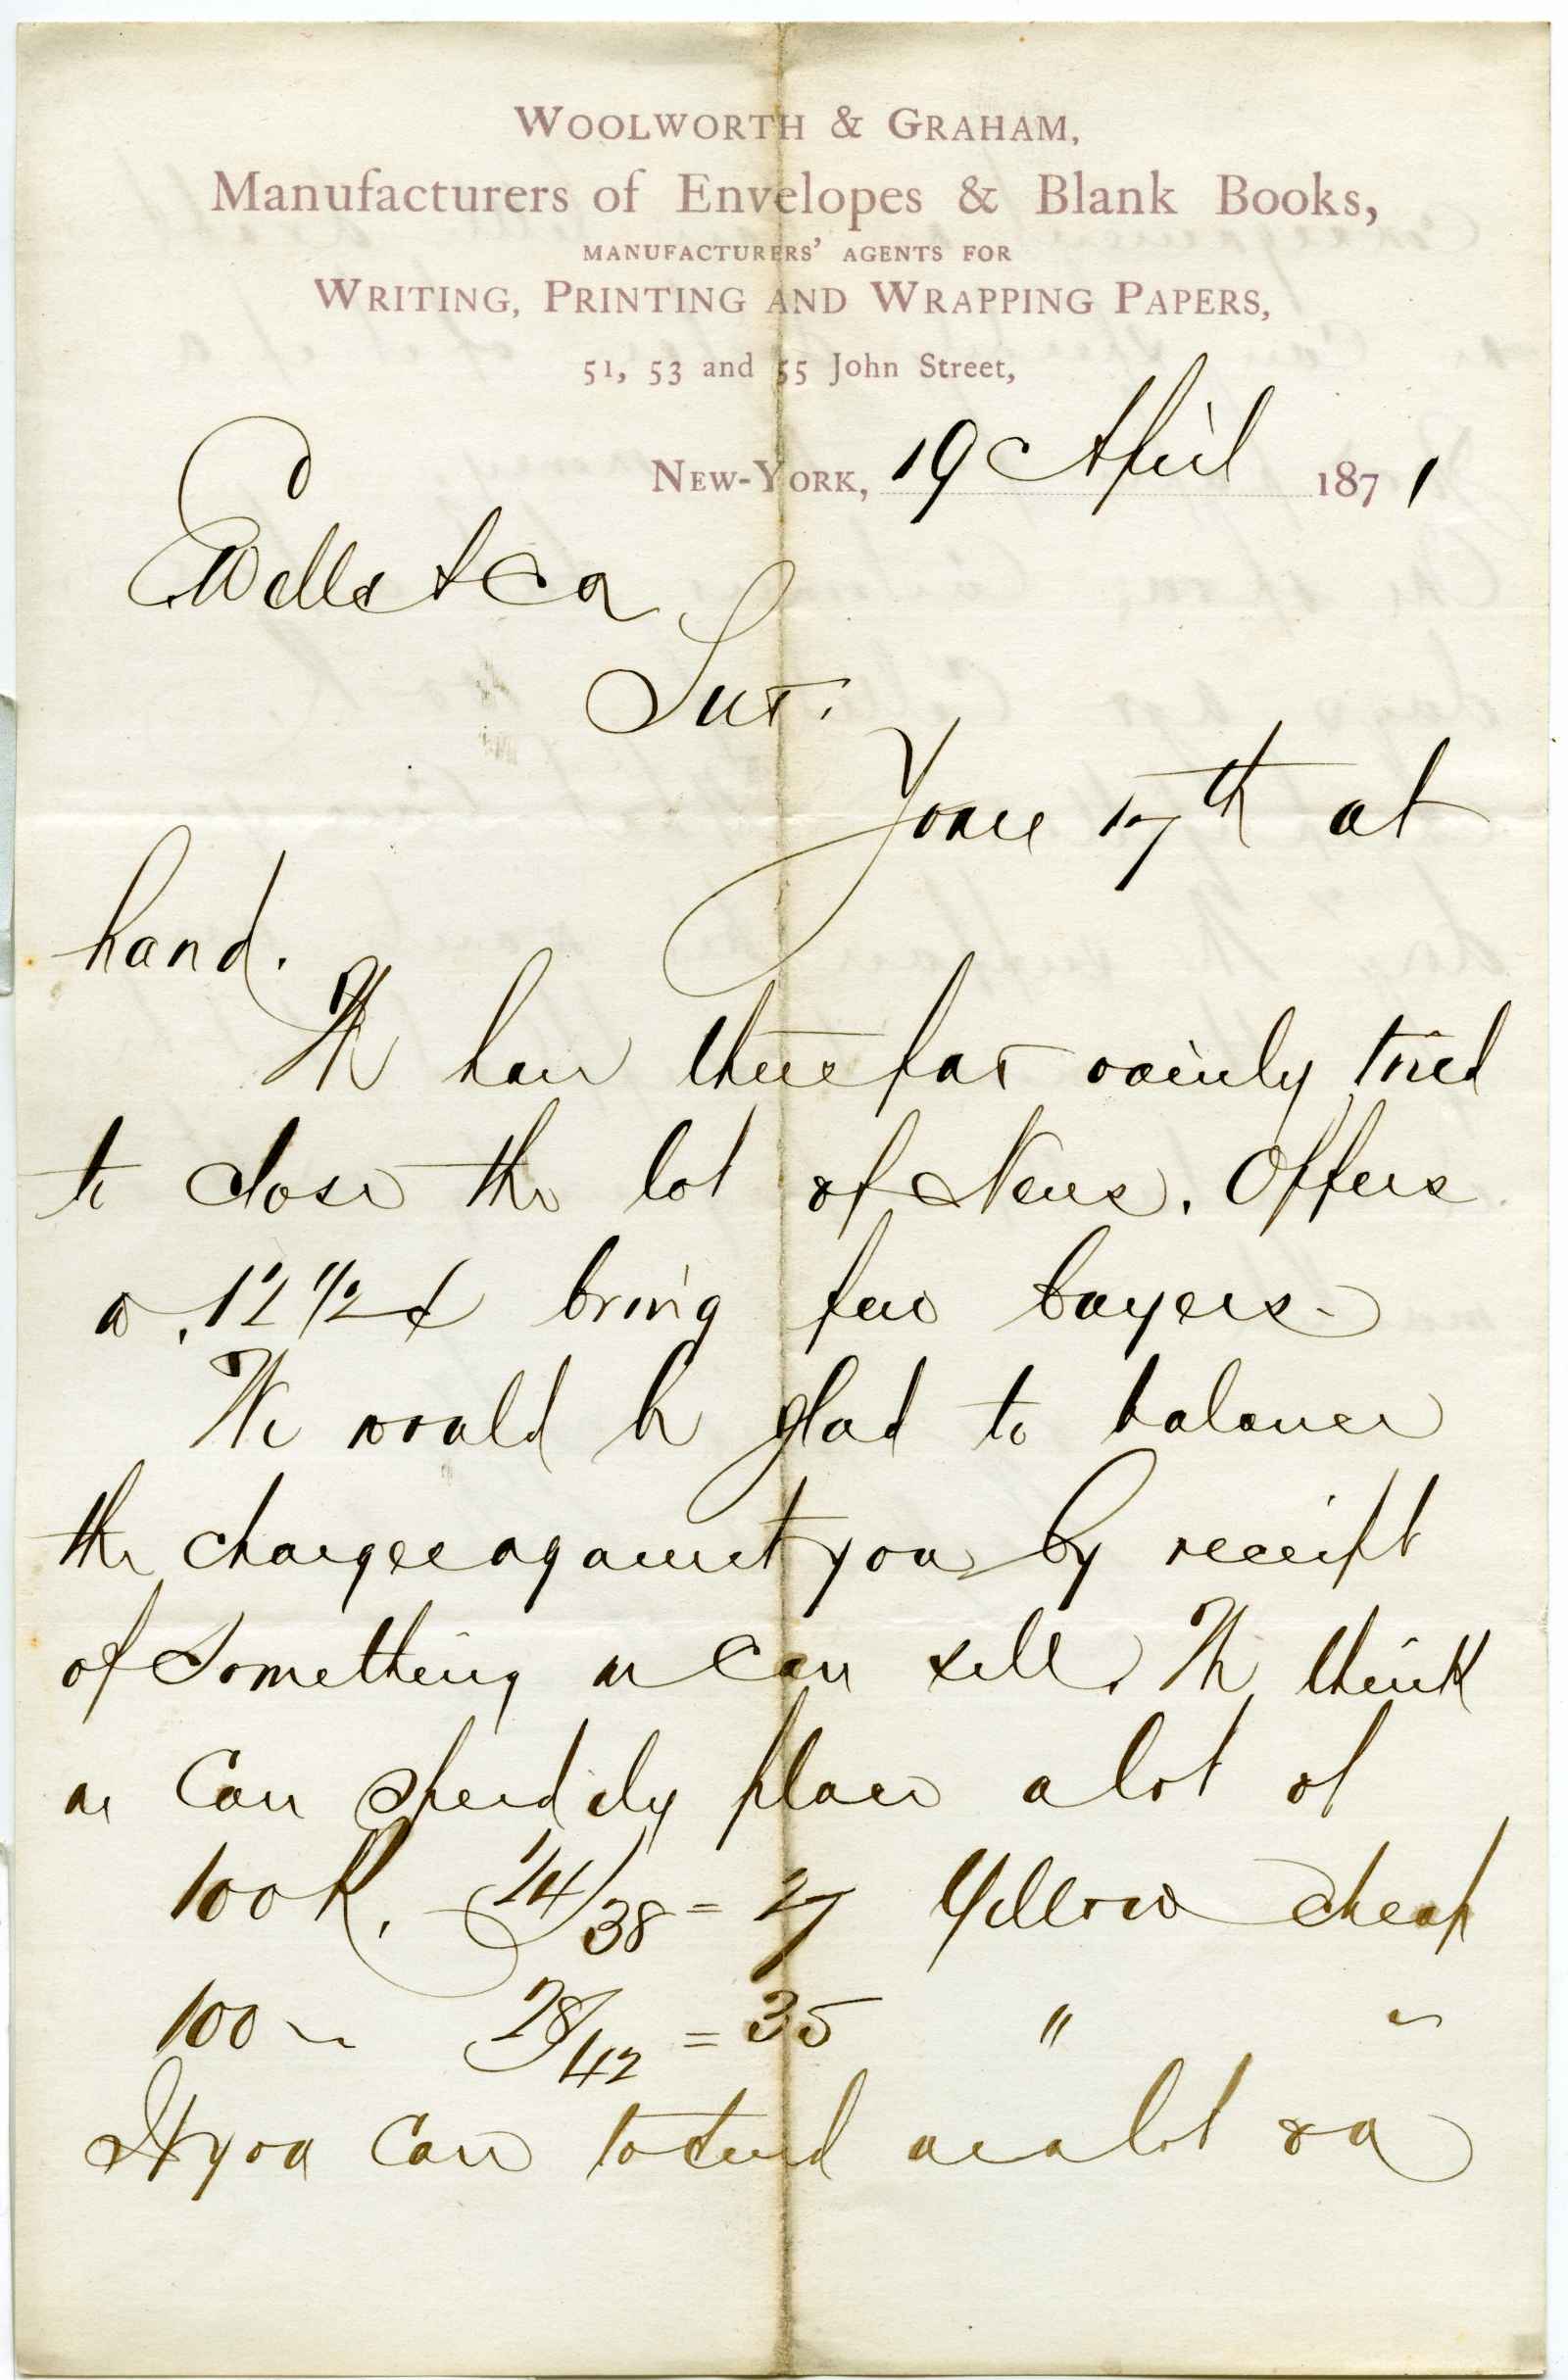 WOOLWORTH & GRAHAM,
Manufacturers of Envelopes & Blank Books,
MANUFACTURERS' AGENTS FOR
WRITING, PRINTING AND WRAPPING PAPERS,
51, 53 and 55 John Street,
NEW-YORK, 19 April 1871
Wells & Co
Yours 17th at
hand.
We have vainly tried
to close the lot of News. Offers
a .12 1/2 ¢ bring few buyers.
We would be glad to balance
the charges against you by receipt
of something we can sell. We think
we can speedily place a lot of
100 R. 24/38 = 27 Yellow cheap
100 " 28/42 = 35 " "
If you care to send us a lot